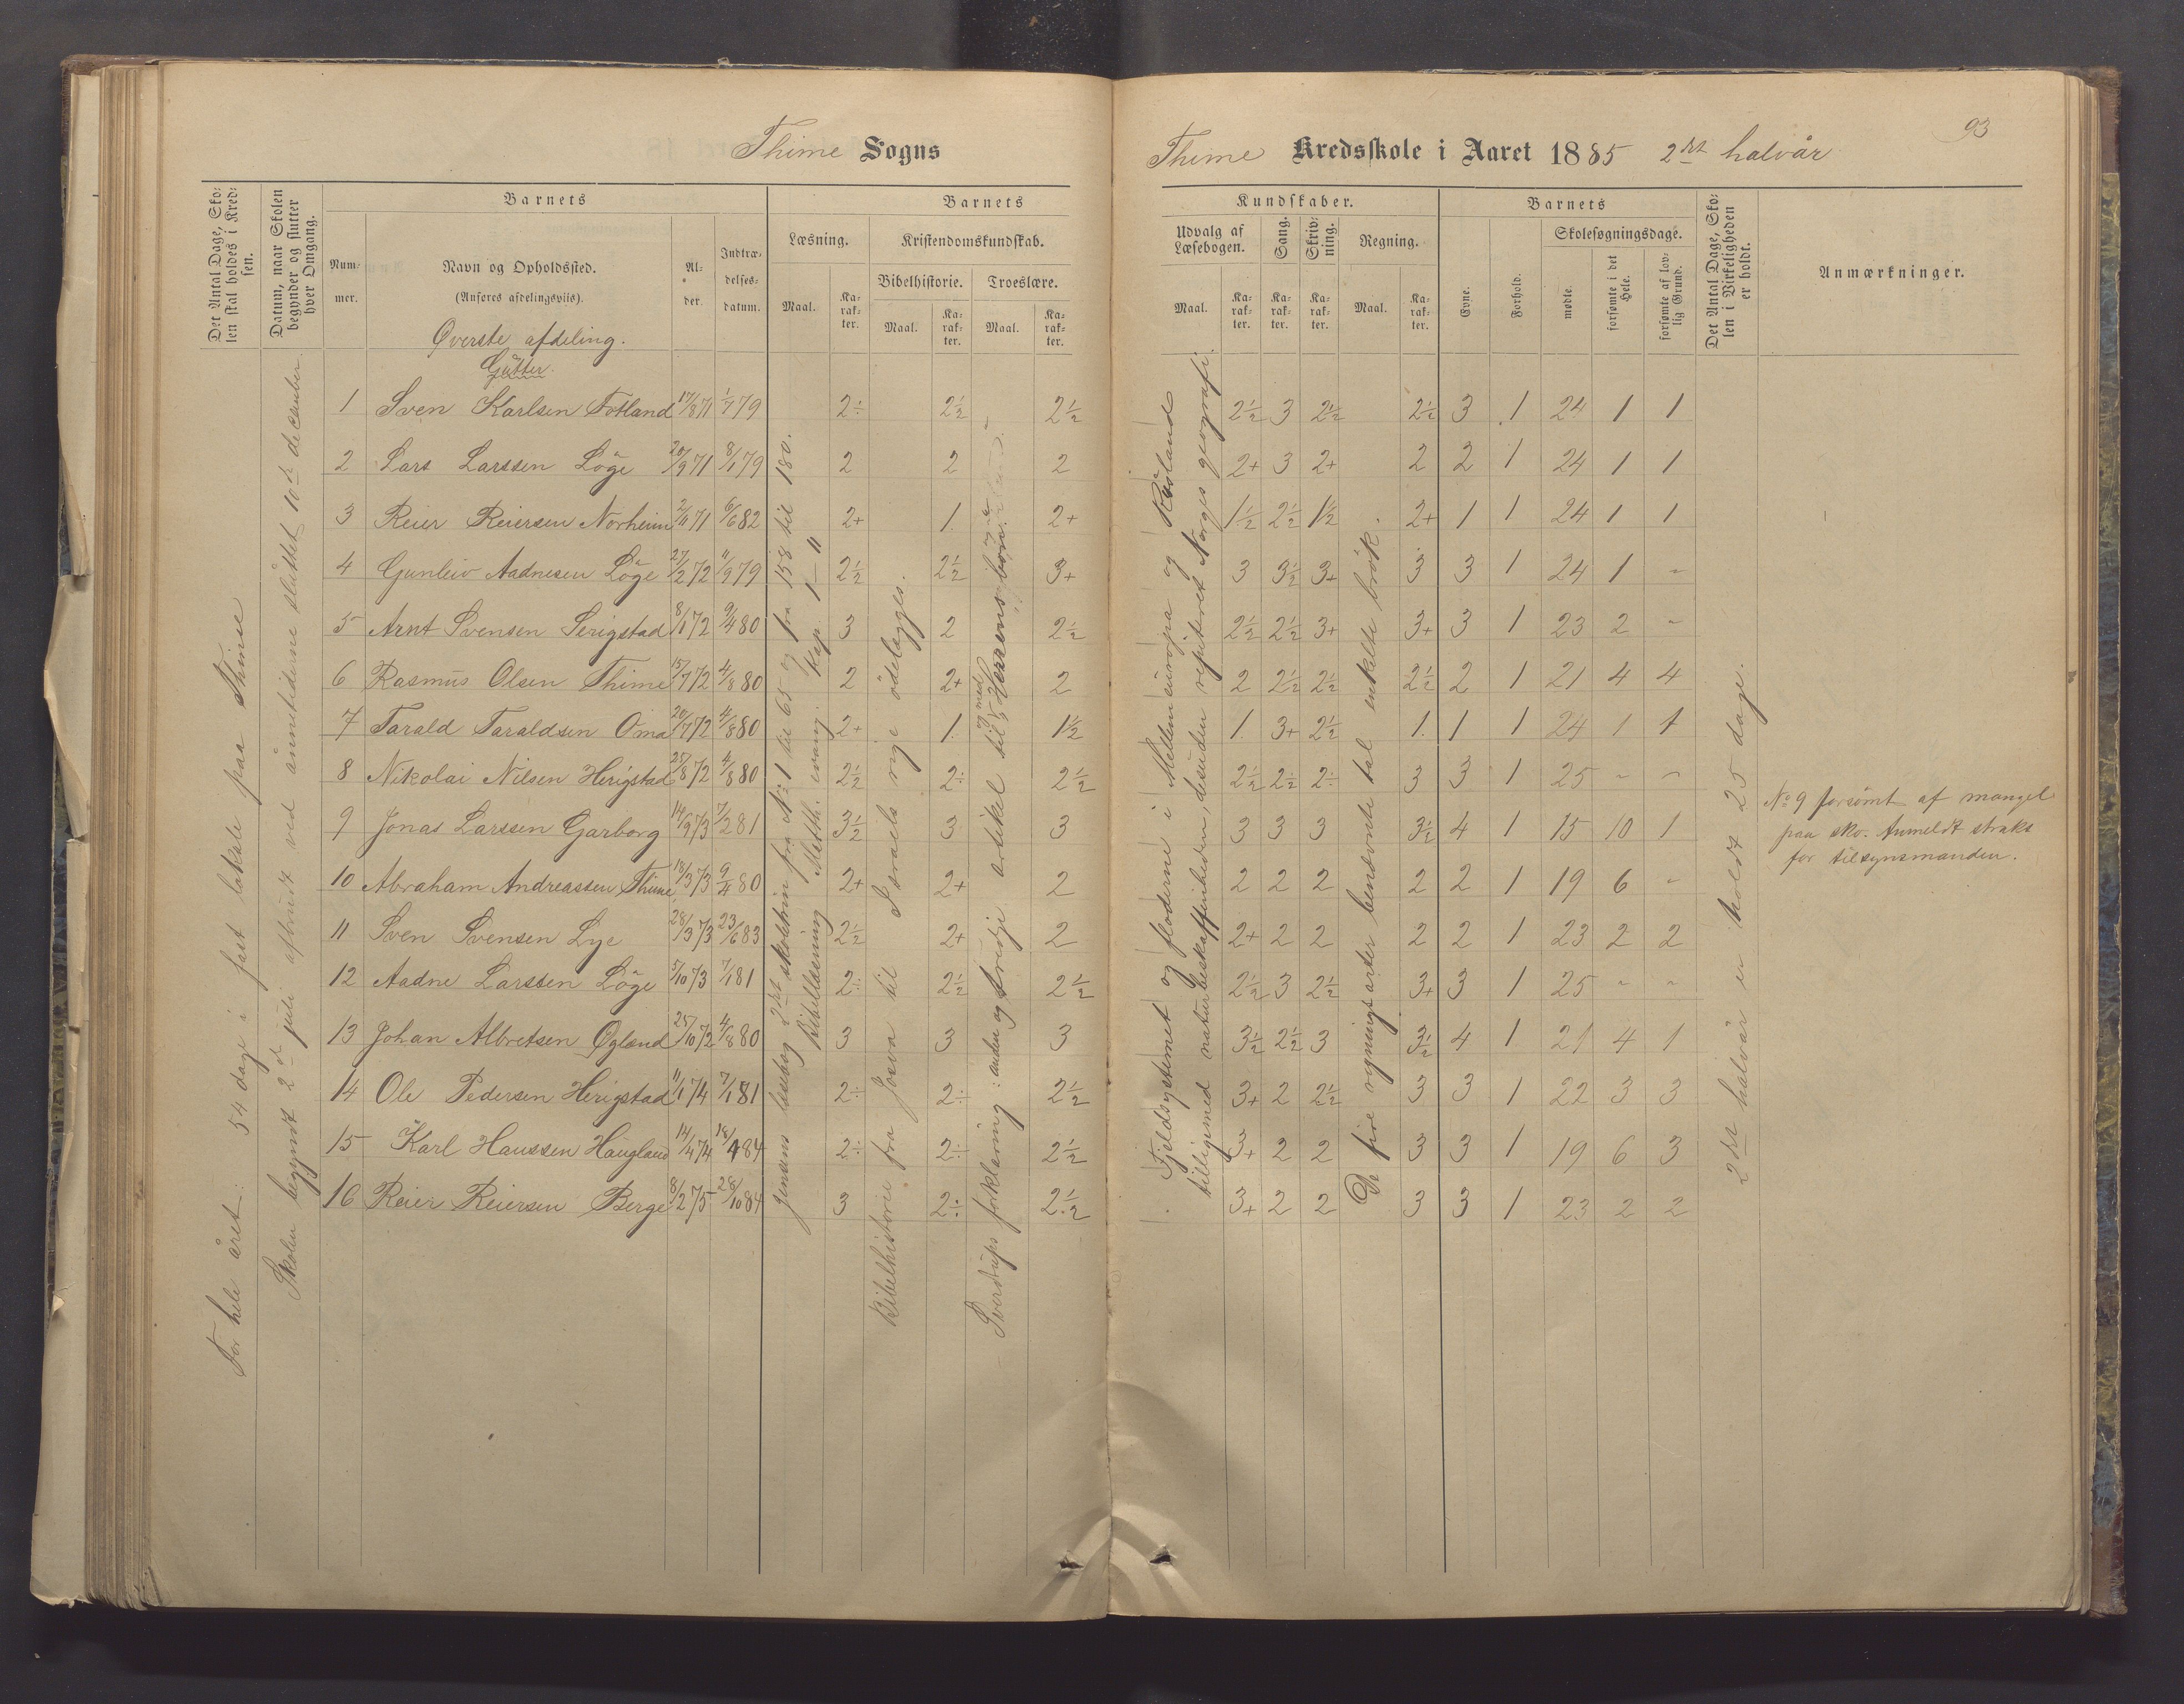 Thime Sogns
Det Antal Dage, Sko-
len skal holdes i Kred-
sen.
Datum, naar Skolen
begynder og slutter
hver Omgang.
Barnets
Num-
mer.
Navn og Opholdssted.
(Anføres afdelingsviis).
Al-
der.
Indtræ-
delses-
datum.
Læsning.
Maal.
Ka-
rak-
ter.
Barnets
Kristendomskundskab.
Bibelhistorie.
Troeslære.
Maal.
Ka-
rak-
ter.
Maal.
Ka-
rak-
ter.
Øverste afdeling.
Gutter.
1 Sven Karlsen Fotland 17/8 71 1/7 79 2÷ 2½ 2½
2 Lars Larssen Löge 20/9 71 8/1 79 2 2 2
3 Reier Reiersen Norheim 2/11 71 6/6 82 2+ 1. 2+
4 Gunleiv Aadnesen Löge 27/2 72 11/9 79 2½ 2½ 3+
5 Arnt Svensen Serigstad 8/1 72 9/4 80 3 2 2½
6 Rasmus Olsen Thime 15/7 72 4/8 80 2 2+ 2
7 Tarald Taraldsen Oma 20/7 72 4/8 80 2+ 1. 1½
8 Nikolai Nilsen Herigstad 25/8 72 4/8 80 2½ 2÷ 2½
9 Jonas Larssen Garborg 14/9 73 7/2 81 3½ 3 3
10 Abraham Andreassen Thime 18/3 73 9/4 80 2+ 2+ 2
11 Sven Svensen Lye 28/3 73 23/6 83 2½ 2+ 2
12 Aadne Larssen Löge 5/10 73 7/1 81 2÷ 2½ 2½
13 Johan Albretsen Øgland 25/10 72 4/8 80 3 3 3
14 Ole Pedersen Herigstad 11/1 74 7/1 81 2÷ 2÷ 2½
15 Karl Hanssen Haugland 14/4 74 18/4 84 2÷ 2÷ 2½
16 Reier Reiersen Berge 8/2 75 28/10 84 3 2÷ 2½
For hele året: 54 dage i fast lokale paa Thime
Skolen begyndt 2d juli afbrudt ved ånnetiderne sluttet 10de december
Jensens læsebog 2det skoletrin fra No 1 til 65 og fra 158 til 180.
Bibellæsning Matth. evang. kap. 1 – 11
Bibelhistorie fra Josva til Israels rige ödelægges.
Sverdrups forklaring: anden og tredje artikel til og med Herrens bön.
Thime Kredsskole i Aaret 1885 2det halvår
93
Kundskaber.
Udvalg af
Læsebogen.
Maal.
Ka-
rak-
ter.
Sang.
Ka-
rak-
ter.
Skriv-
ning.
Ka-
rak-
ter.
Regning.
Maal.
Ka-
rak-
ter.
Barnets
Evne.
Forhold.
Skolesøgningsdage.
mødte.
forsømte i det
Hele.
forsømte af lov-
lig Grund.
Det Antal Dage, Sko-
len i Virkeligheden
er holdt.
Anmærkninger.
2½ 3 2½ 2½ 3 1 24 1 1
2+ 3 2+ 2 2 1 24 1 1
1½ 2½ 1½ 2+ 1 1 24 1 1
3 3½ 3+ 3 3 1 24 1 -
2½ 2½ 3+ 3+ 3 1 23 2 -
2 2½ 2½ 2½ 2 1 21 4 4
1. 3+ 2½ 1. 1 1 24 1 1
2½ 2½ 2÷ 3 3 1 25 - -
3 3 3 3½ 4 1 15 10 1
2 2 2 2 2 1 19 6 -
2+ 2 2 2 2 1 23 2 2
2½ 3 2½ 3+ 3 1 25 - -
3½ 2½ 3 3½ 4 1 21 4 1
3+ 2 2½ 3 3 1 22 3 3
3+ 2 2 3 3 1 19 6 3
3+ 2 2 3 3 1 23 2 2
Fjeldsystemet og floderne i Mellemeuropa og Rusland
tilligemed naturbeskaffenheden, desuden repeteret Norges geografi.
De fire regningsarter benævnte tal enkelte brök.
2det halvår er holdt 25 dage.
No 9 forsömt af mangel
paa sko. Anmeldt straks
for tilsynsmanden.